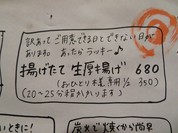 訳あって ご用意できる日とできない日が
あります。あったらラッキー♪
揚げたて 生厚揚げ 680
(おひとり様専用1/2 350)
(20~25分程かかります)
ときに!
炭火で